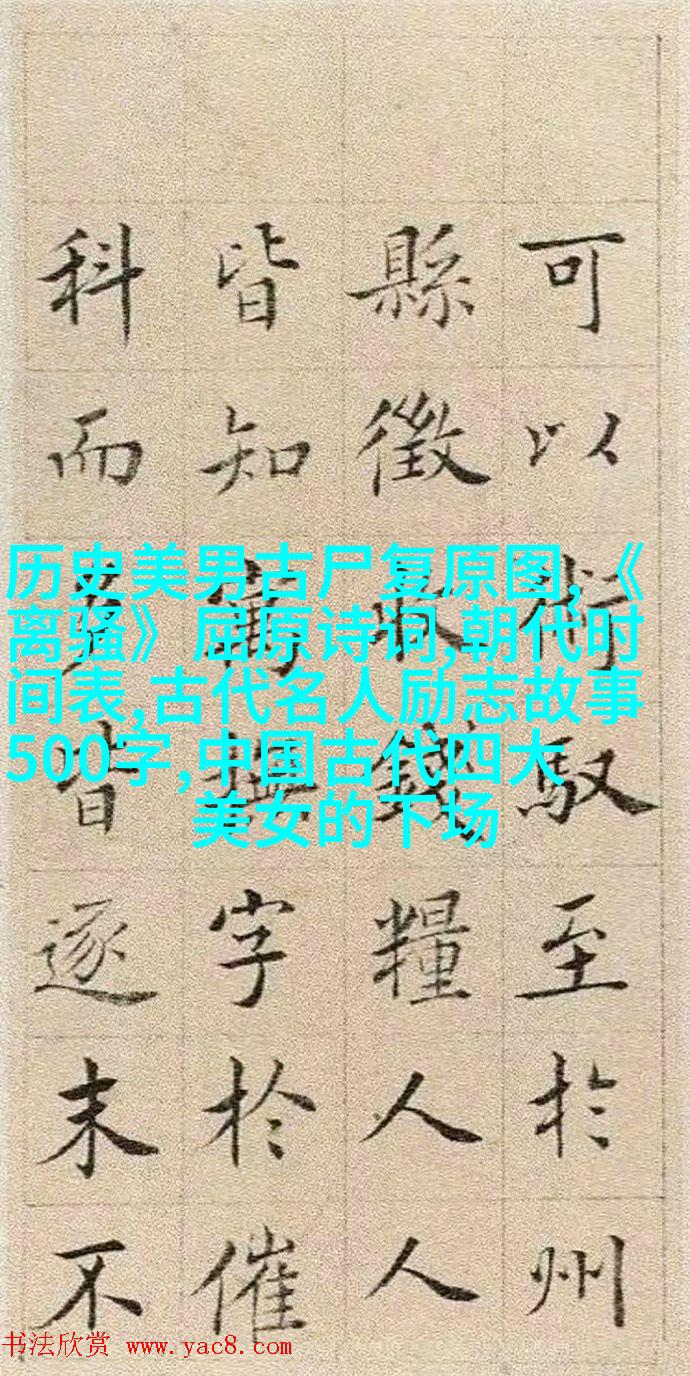 可以術馭至於州
縣徵錢糧人人
皆知撫字於催
科而皆逐末不
历史美男古尸复原图,《
离骚》屈原诗词,朝代时
间表,古代名人励志故事
500字,中国古代四大
美女的下场
书法欣赏 www.yac8.com